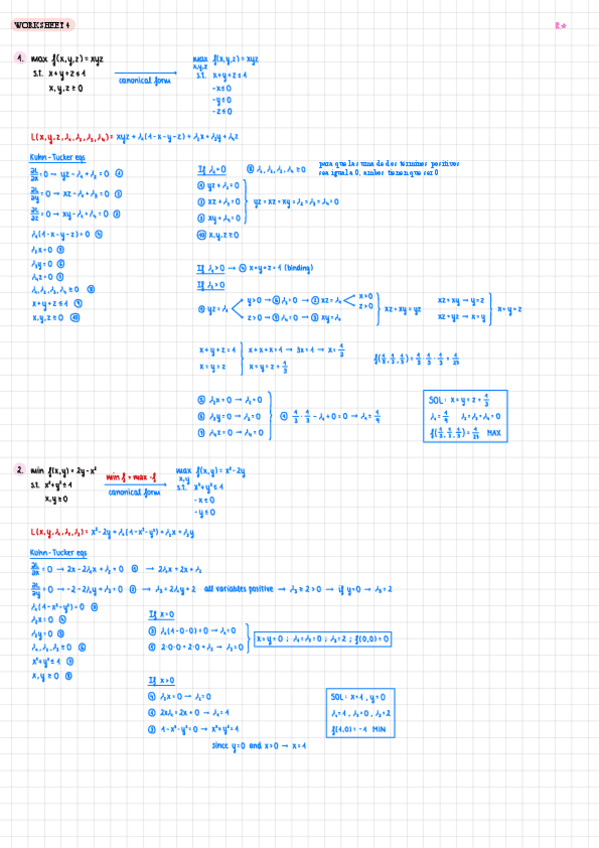 WORKSHEET 4
1. max f(x,y,z) = xyz
s.t. x+y+z ≤ 1
x,y,z ≥ 0
canonical form
max f(x,y,z) = xyz
x,y,z
s.t. x+y+z ≤ 1
-x ≤ 0
-y ≤ 0
-z ≤ 0
L(x,y,z,λ₁,λ₂,λ₃,λ₄) = xyz + λ₁(1-x-y-z) + λ₂x + λ₃y + λ₄z
Kuhn-Tucker eqs
∂L/∂x = 0 → yz - λ₁ + λ₂ = 0 ①
∂L/∂y = 0 → xz - λ₁ + λ₃ = 0 ②
∂L/∂z = 0 → xy - λ₁ + λ₄ = 0 ③
λ₁(1-x-y-z) = 0 ④
λ₂x = 0 ⑤
λ₃y = 0 ⑥
λ₄z = 0 ⑦
λ₁,λ₂,λ₃,λ₄ ≥ 0 ⑧
x+y+z ≤ 1 ⑨
x,y,z ≥ 0 ⑩
If λ₁=0 ⑧ λ₁,λ₂,λ₃,λ₄ ≥ 0
para que la suma de dos terminos positivos
sea igual a 0, ambos tienen que ser 0
① yz + λ₂ = 0
② xz + λ₃ = 0 yz = xz = xy = λ₂ = λ₃ = λ₄ = 0
③ xy + λ₄ = 0
⑩ x,y,z ≥ 0
If λ₁>0 → ④ x+y+z = 1 (binding)
y>0 → ⑥ λ₃=0 → ② xz = λ₁ x>0
z>0
① yz = λ₁ xz = xy = yz
z>0 → ⑦ λ₄=0 → ③ xy = λ₁
xz = xy → y = z
xz = yz → x = y
x = y = z
x+y+z = 1 x+x+x = 1 → 3x = 1 → x = 1/3
x = y = z x = y = z = 1/3
f(1/3, 1/3, 1/3) = 1/3 · 1/3 · 1/3 = 1/27
⑤ λ₂x = 0 → λ₂ = 0
⑥ λ₃y = 0 → λ₃ = 0 ① 1/3 · 1/3 - λ₁ + 0 = 0 → λ₁ = 1/9
⑦ λ₄z = 0 → λ₄ = 0
SOL: x = y = z = 1/3
λ₁ = 1/9 λ₂ = λ₃ = λ₄ = 0
f(1/3, 1/3, 1/3) = 1/27 MAX
2. min f(x,y) = 2y - x²
s.t. x²+y² ≤ 1
x,y ≥ 0
min f = max -f
canonical form
max f(x,y) = x² - 2y
x,y
s.t. x²+y² ≤ 1
-x ≤ 0
-y ≤ 0
L(x,y,λ₁,λ₂,λ₃) = x² - 2y + λ₁(1-x²-y²) + λ₂x + λ₃y
Kuhn-Tucker eqs
∂L/∂x = 0 → 2x - 2λ₁x + λ₂ = 0 ① → 2λ₁x = 2x + λ₂
∂L/∂y = 0 → -2 - 2λ₁y + λ₃ = 0 ② → λ₃ = 2λ₁y + 2 all variables positive → λ₃ ≥ 2 > 0 → if y=0 → λ₃ = 2
λ₁(1-x²-y²) = 0 ③
λ₂x = 0 ④
λ₃y = 0 ⑤
λ₁,λ₂,λ₃ ≥ 0 ⑥
x²+y² ≤ 1 ⑦
x,y ≥ 0 ⑧
If x=0
③ λ₁(1-0-0) = 0 → λ₁ = 0
① 2·0·0 = 2·0 + λ₂ → λ₂ = 0
x = y = 0 ; λ₁ = λ₂ = 0 ; λ₃ = 2 ; f(0,0) = 0
If x>0
④ λ₂x = 0 → λ₂ = 0
① 2xλ₁ = 2x + 0 → λ₁ = 1
③ 1-x²-y² = 0 → x²+y² = 1
since y=0 and x>0 → x = 1
SOL: x = 1, y = 0
λ₁ = 1, λ₂ = 0, λ₃ = 2
f(1,0) = -1 MIN